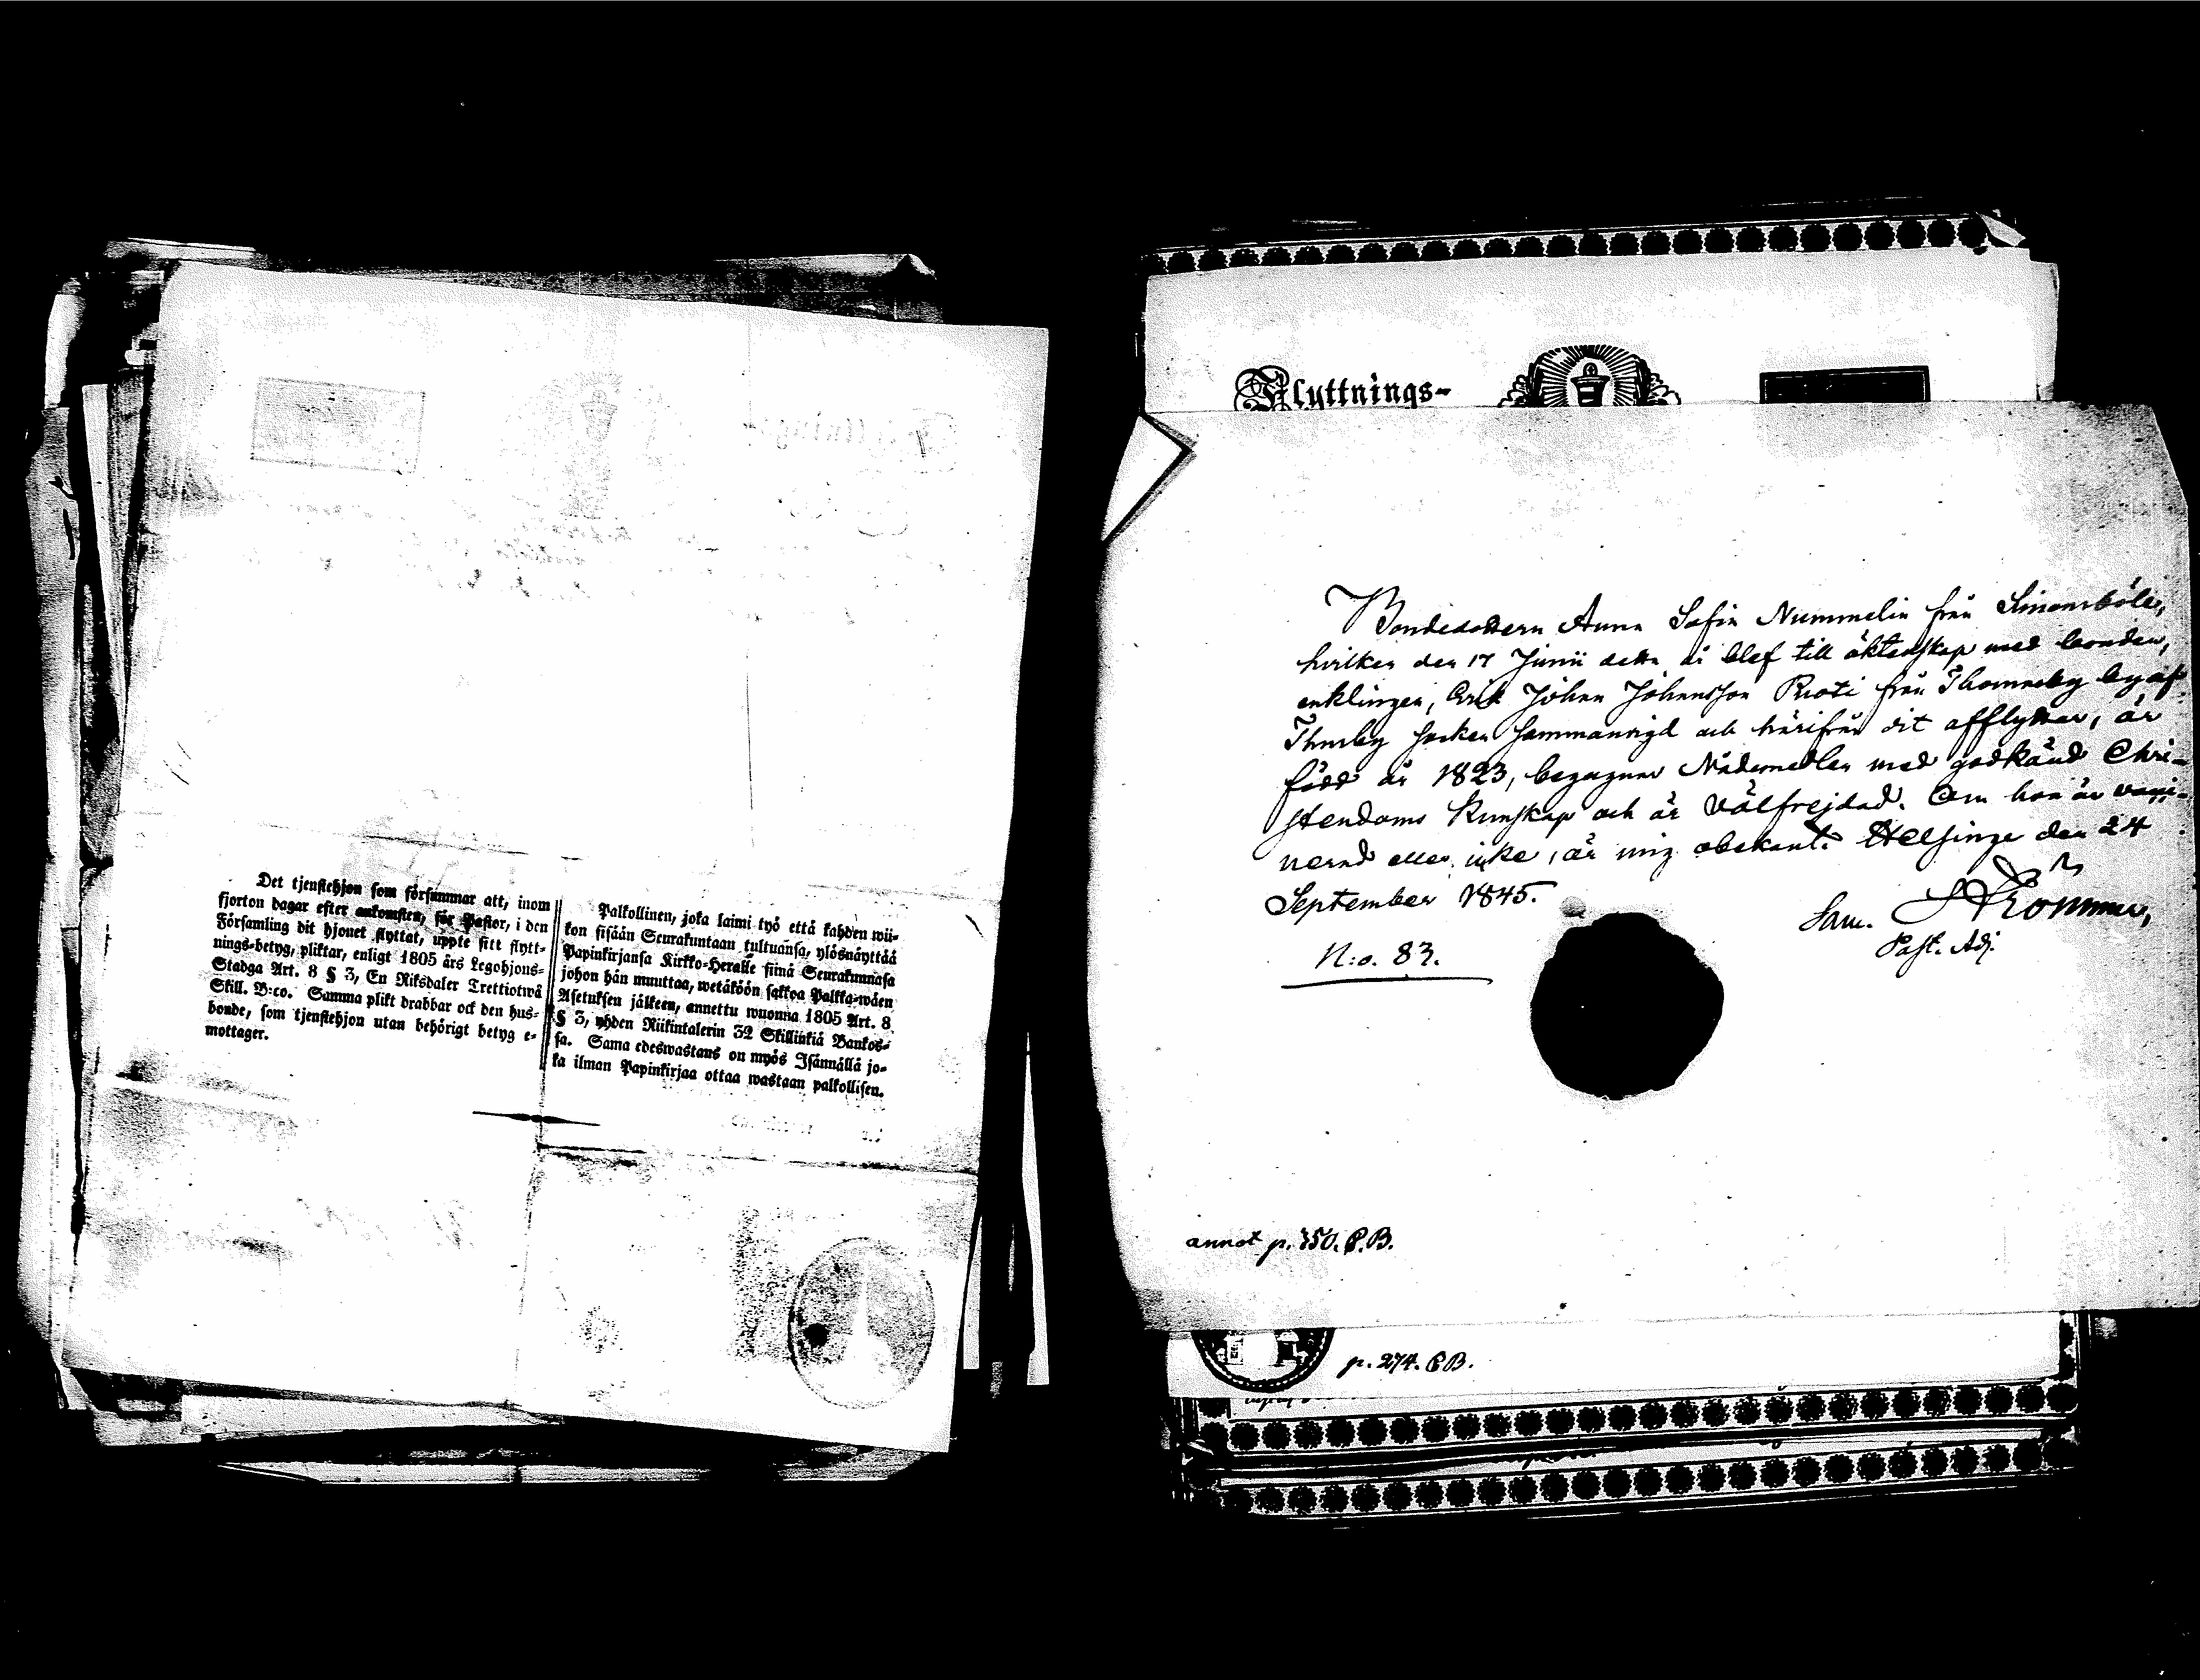 Det tjenstehjon som försummar att, inom
fjorton dagar efter ankomsten, för Pastor, i den
Församling dit hjonet flyttat, uppte sitt flytt-
nings-betyg, pliktar, enligt 1805 års Legohjons-
Stadga Art. 8 § 3, En Riksdaler Trettiotwå
Skill. B:co. Samma plikt drabbar ock den hus-
bonde, som tjenstehjon utan behörigt betyg e-
mottager.
Palkollinen, joka laimi työ että kahden wii-
kon sisään Seurakuntaan tultuansa, ylösnäyttää
Papinkirjansa Kirkko-Heralle siinä Seurakunnasa
johon hän muuttaa, wetäköön sakkoa Palkka-wäen
Asetuksen jälkeen, annettu wuonna 1805 Art. 8
§ 3, yhden Riikintalerin 32 Skillinkiä Bankos-
sa. Sama edeswastaus on myös Isännällä jo-
ka ilman Papinkirjaa ottaa wastaan palkollisen.
Flyttnings-
Bondedottern Anna Sofia Nummelin från Simonsböle,
hvilken den 17 Junii detta år blef till äktenskap med bonden,
enklingen, Erik Johan Johansson från Thomasby by af
Thusby socken sammanvigd och härifrån dit afflyttar, är
född år 1823, begagnar Nådemedlen med godkänd Chri-
stendoms kunskap och är välfrejdad. Om hon är vacci-
nerad eller icke, är mig obekant. Helsinge den 24
September 1845.
Sam.
Past. Adj.
N:o. 83.
annot p. 350. C.B.
p. 274. C.B.